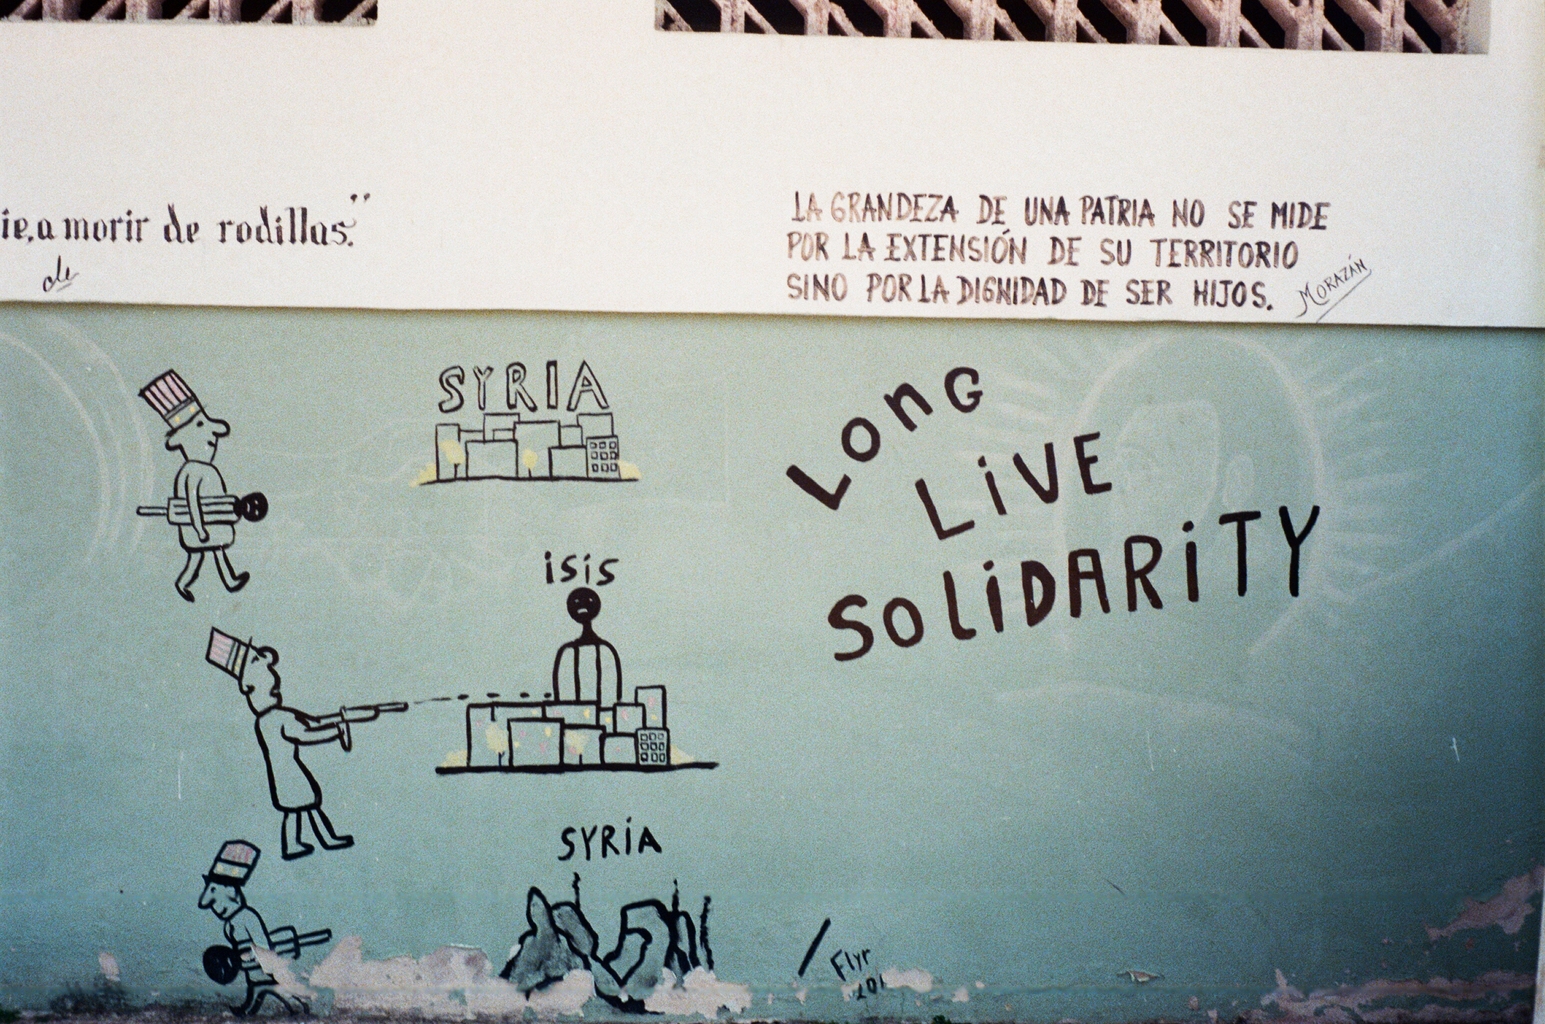 a morir de rodillas."
de
LA GRANDEZA DE UNA PATRIA NO SE MIDE
POR LA EXTENSIÓN DE SU TERRITORIO
SINO POR LA DIGNIDAD DE SER HIJOS.
MORAZÁN
SYRIA
iSiS
SYRiA
LOnG
LiVE
SOLiDARiTY